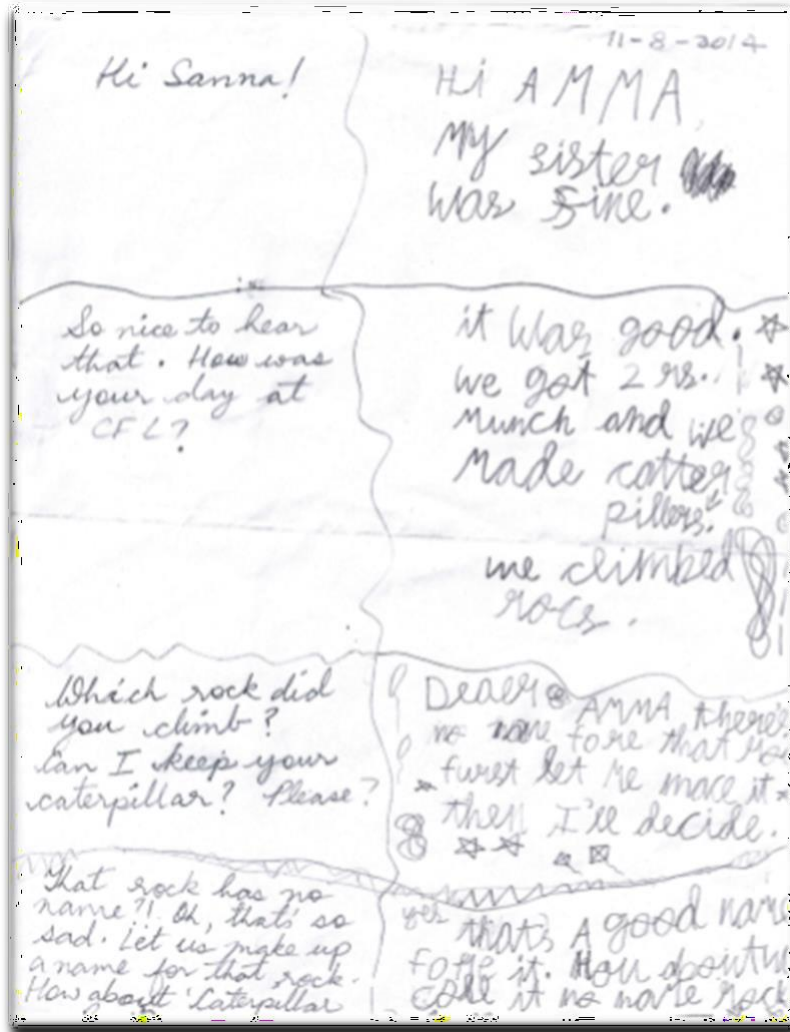 11-8-2014
Hi Sanna!
Hi AMMA
My sister
was fine.
So nice to hear
that. How was
your day at
CFL?
it was good.
we got 2 rs.
Munch and we
Made catter
pillers.
we climbed
rocs.
Which rock did
you climb?
Can I keep your
caterpillar? Please?
Deaer AMMA there's
no name fore that
furst let me mace it
then I'll decide.
That rock has no
name?! Oh, that's so
sad. Let us make up
a name for that rock.
How about 'Caterpillar
yes that's A good name
fore it. How about
cole it no name rock